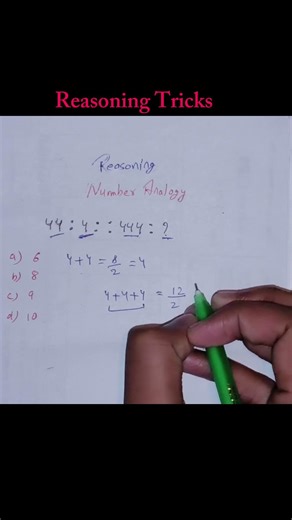 Reasoning Tricks
Reasoning
Number Analogy
44 : 4 : : 444 : ?
a) 6
4+4 = 8/2 = 4
b) 8
c) 9
4+4+4 = 12/2
d) 10